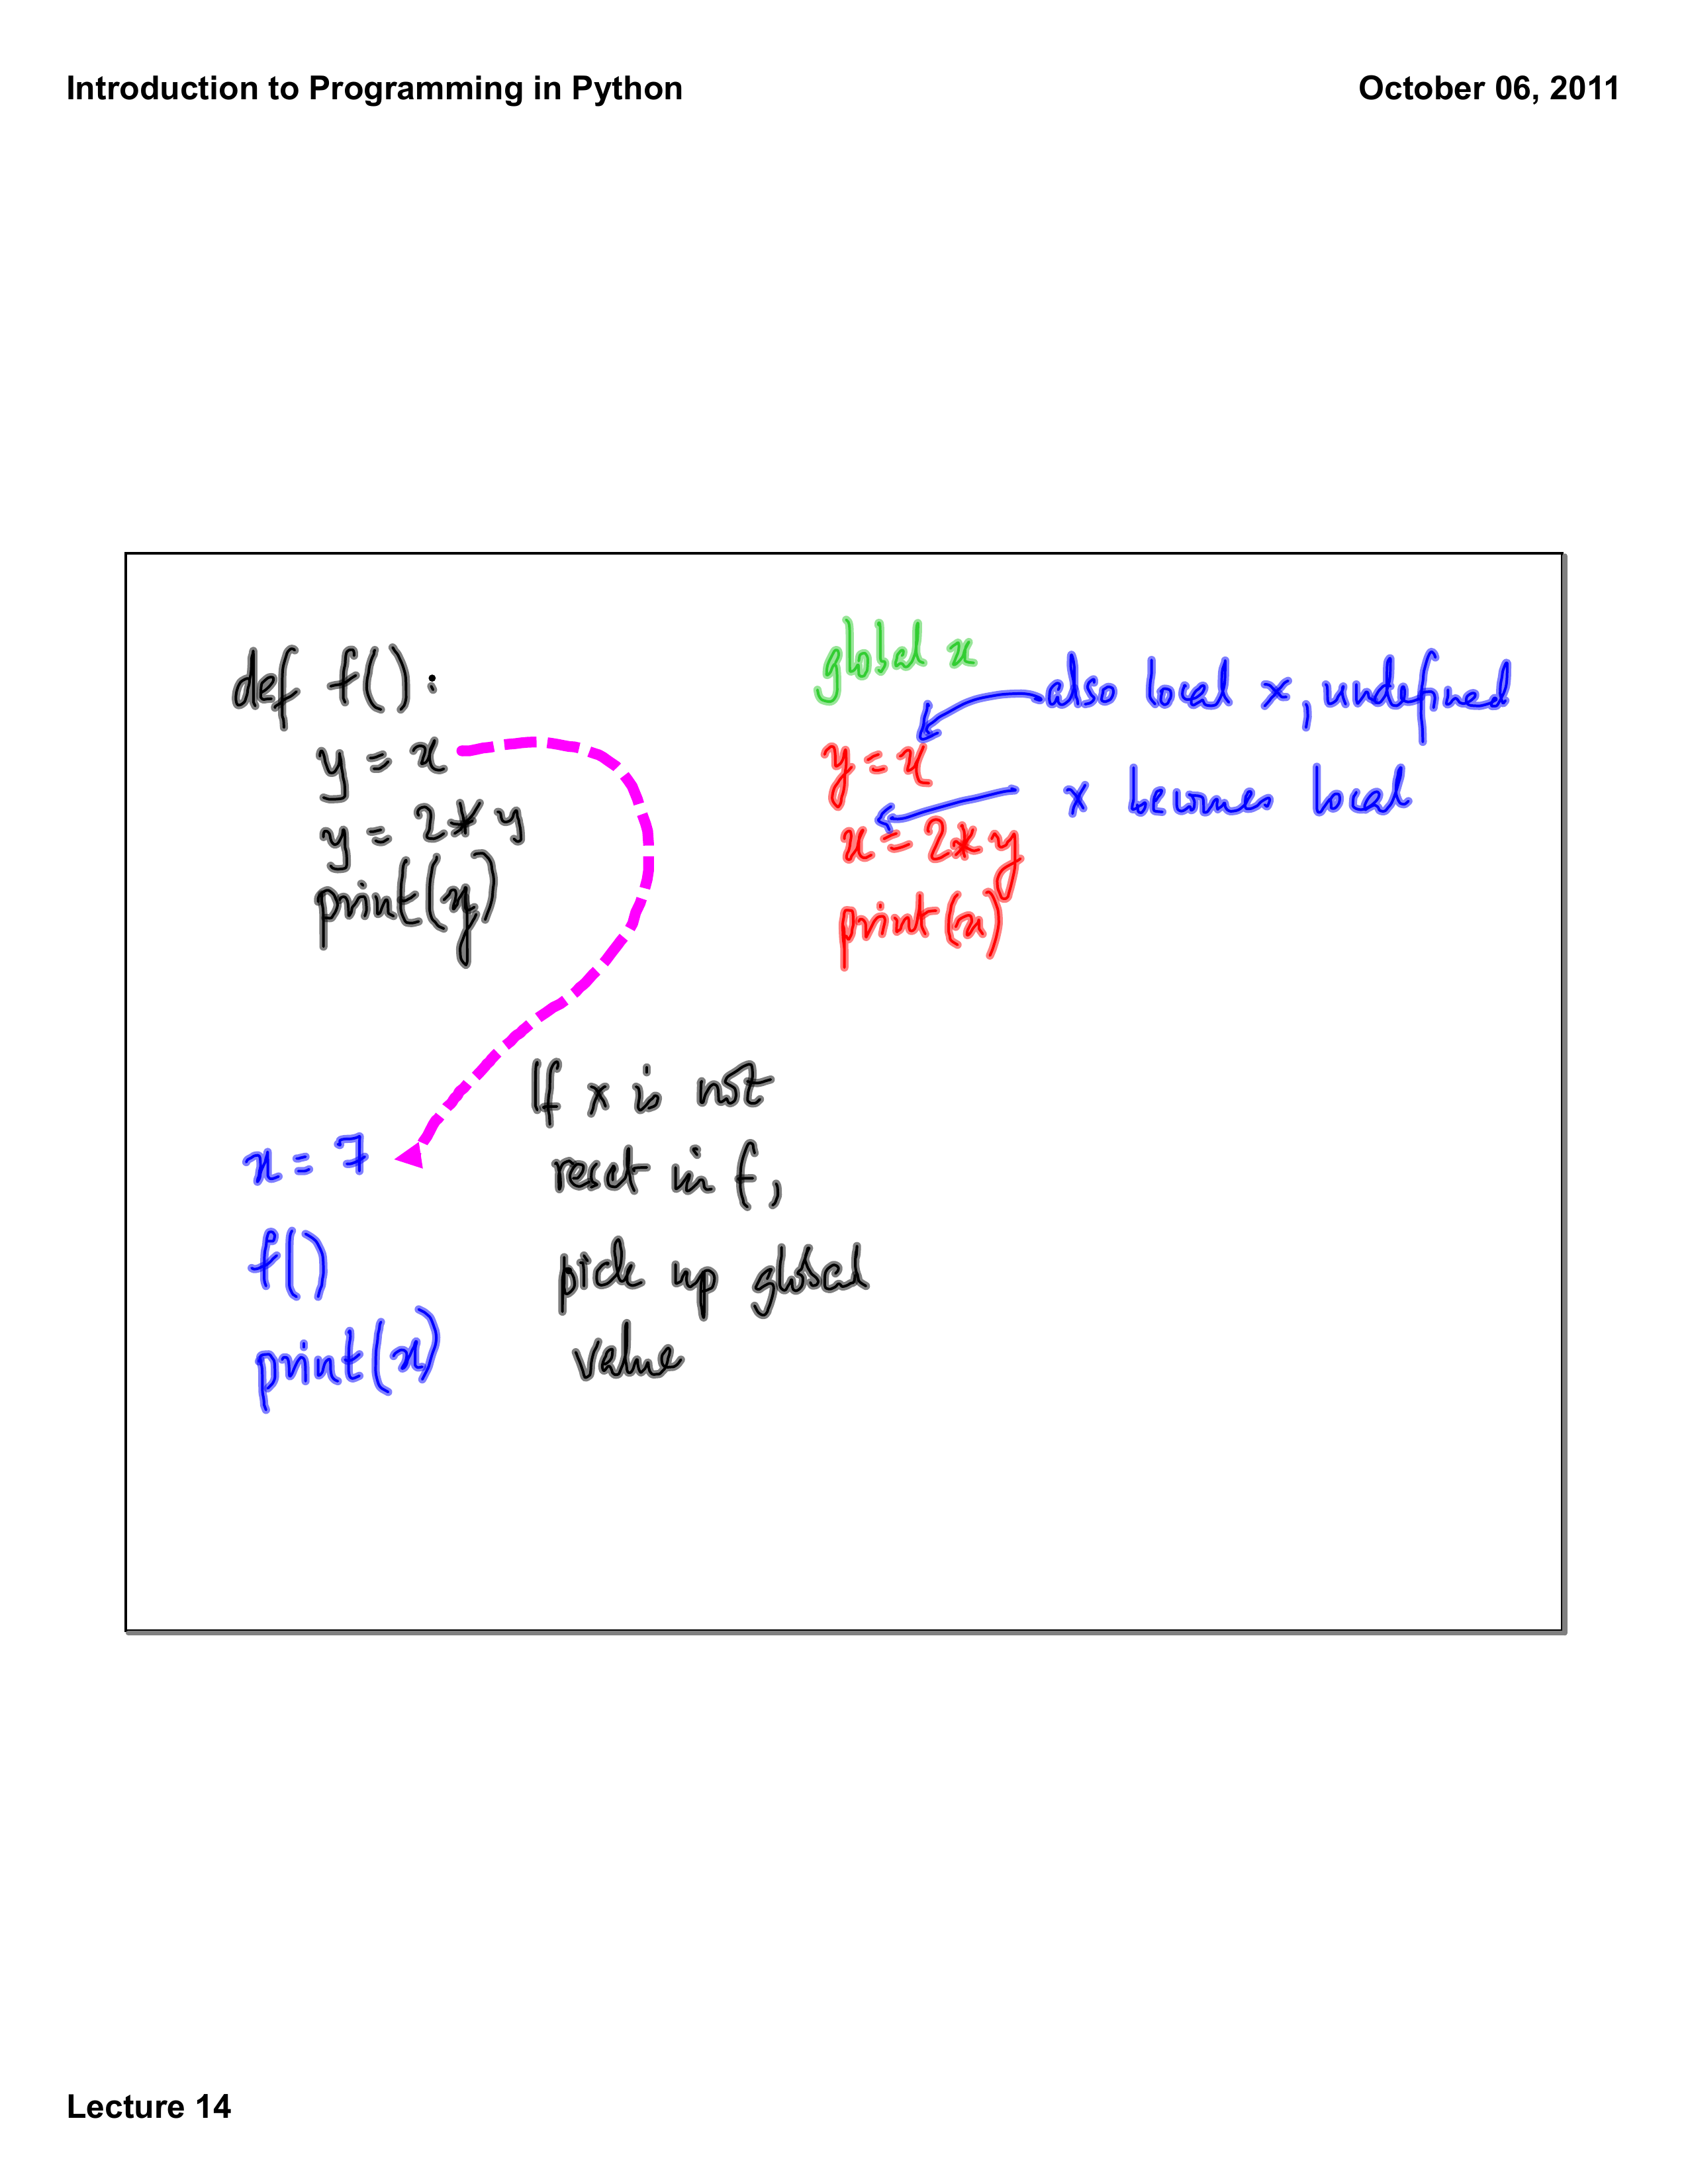 Introduction to Programming in Python
October 06, 2011
def f():
y = x
y = 2*y
print(y)
x = 7
f()
print(x)
If x is not
reset in f,
pick up global
value
global x
also local x, undefined
y = x
x becomes local
x = 2*y
print(x)
Lecture 14